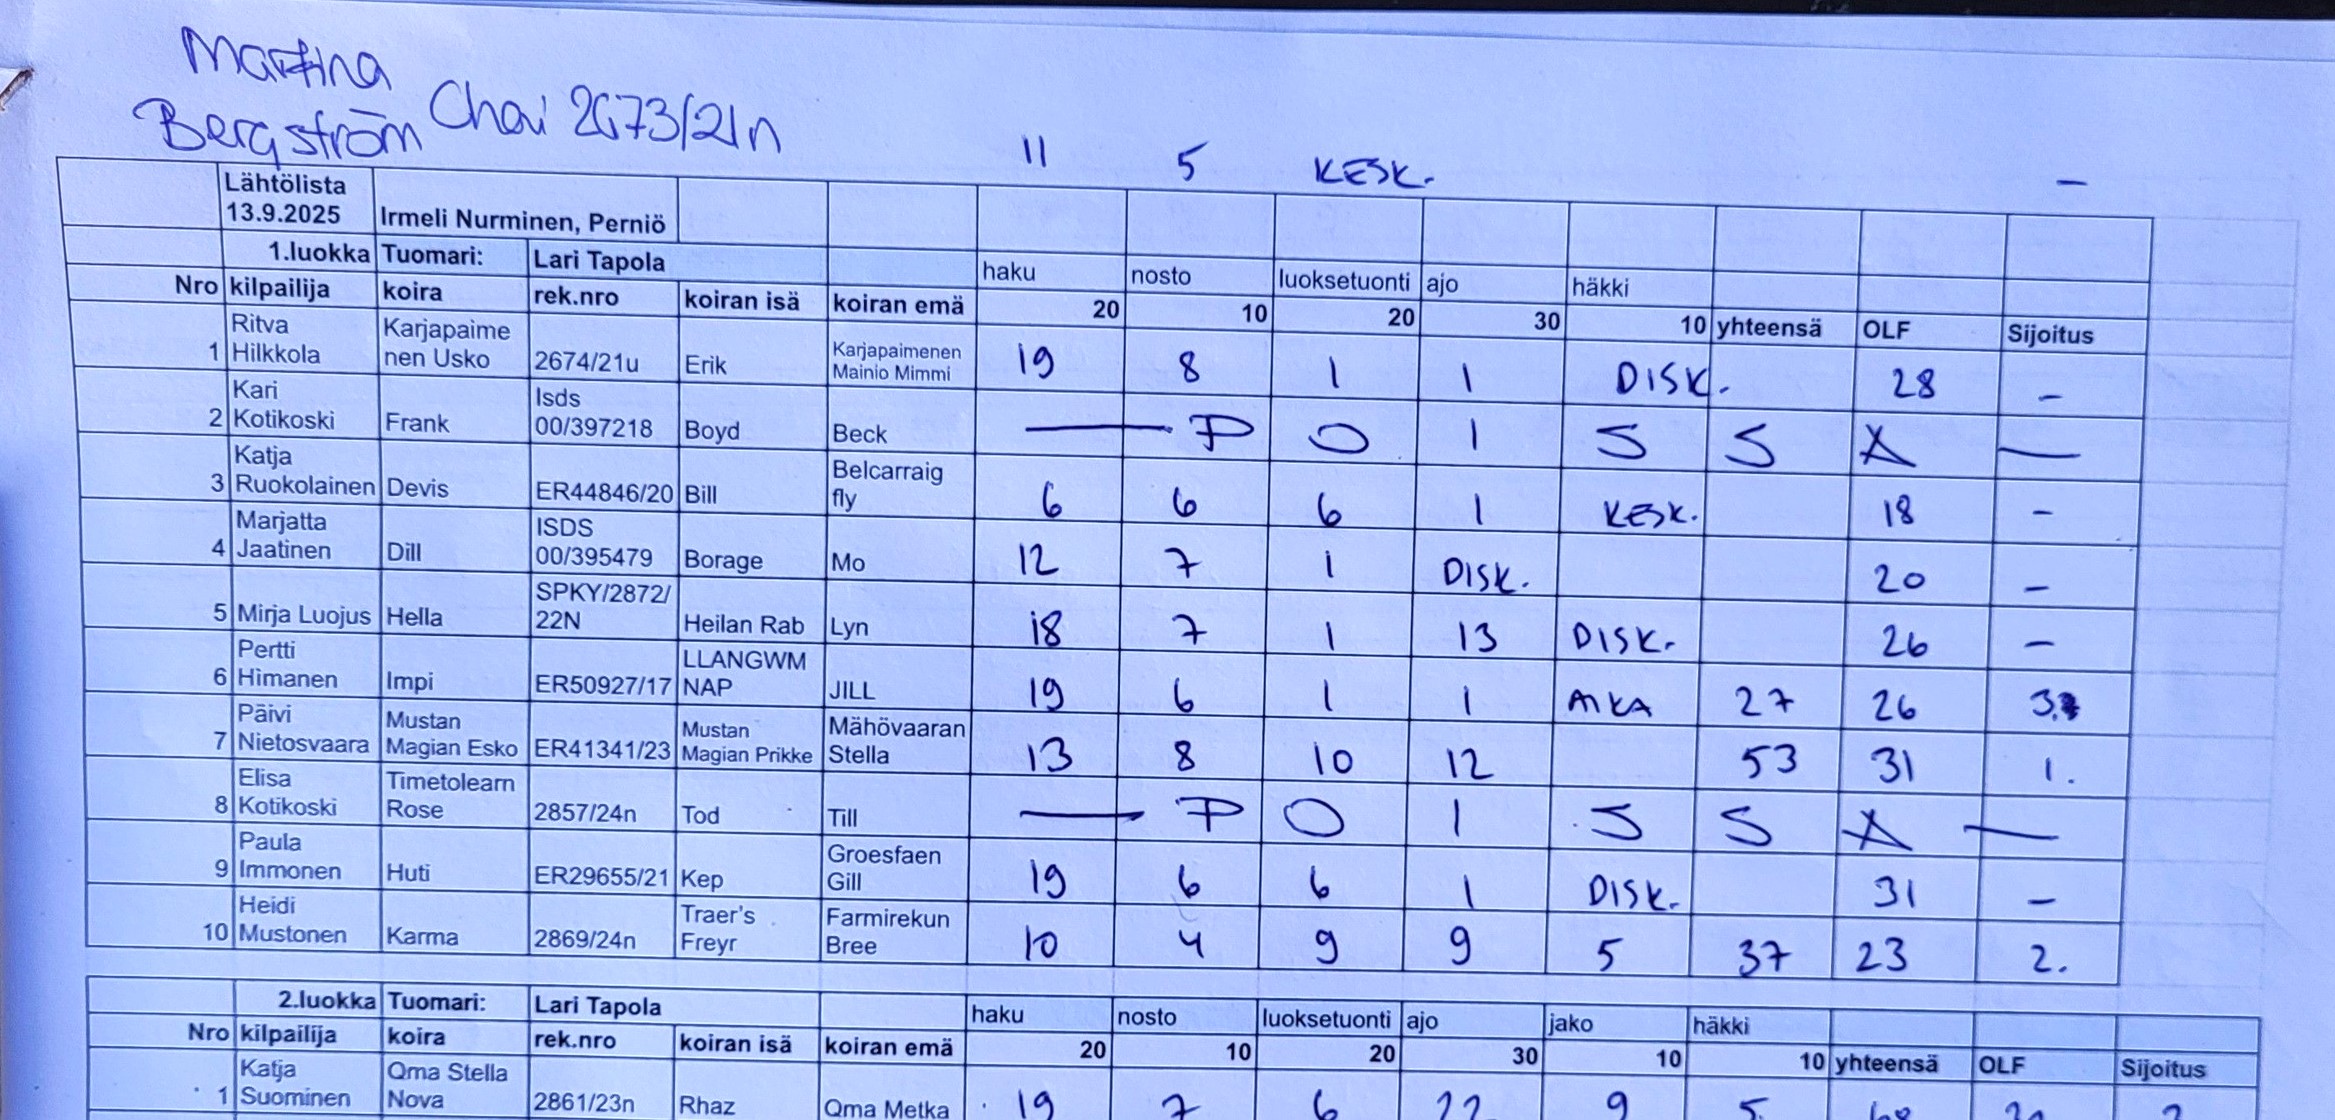 Martina
Bergström Chai 2673/21n 11 5 KESK. –
Lähtölista
13.9.2025 Irmeli Nurminen, Perniö
1.luokka Tuomari: Lari Tapola haku nosto luoksetuonti ajo häkki
Nro kilpailija koira rek.nro koiran isä koiran emä 20 10 20 30 10 yhteensä OLF Sijoitus
1 Ritva Hilkkola Karjapaime nen Usko 2674/21u Erik Karjapaimenen Mainio Mimmi 19 8 1 1 DISK. 28 –
2 Kari Kotikoski Frank Isds 00/397218 Boyd Beck — P O I S S A —
3 Katja Ruokolainen Devis ER44846/20 Bill Belcarraig fly 6 6 6 1 KESK. 18 –
4 Marjatta Jaatinen Dill ISDS 00/395479 Borage Mo 12 7 1 DISK. 20 –
5 Mirja Luojus Hella SPKY/2872/ 22N Heilan Rab Lyn 18 7 1 13 DISK. 26 –
6 Pertti Himanen Impi ER50927/17 LLANGWM NAP JILL 19 6 1 1 AIKA 27 26 3.
7 Päivi Nietosvaara Mustan Magian Esko ER41341/23 Mustan Magian Prikke Mähövaaran Stella 13 8 10 12 53 31 1.
8 Elisa Kotikoski Timetolearn Rose 2857/24n Tod Till — P O I S S A —
9 Paula Immonen Huti ER29655/21 Kep Groesfaen Gill 19 6 6 1 DISK. 31 –
10 Heidi Mustonen Karma 2869/24n Traer's Freyr Farmirekun Bree 10 4 9 9 5 37 23 2.
2.luokka Tuomari: Lari Tapola haku nosto luoksetuonti ajo jako häkki
Nro kilpailija koira rek.nro koiran isä koiran emä 20 10 20 30 10 10 yhteensä OLF Sijoitus
1 Katja Suominen Qma Stella Nova 2861/23n Rhaz Qma Metka 19 7 6 22 9 5